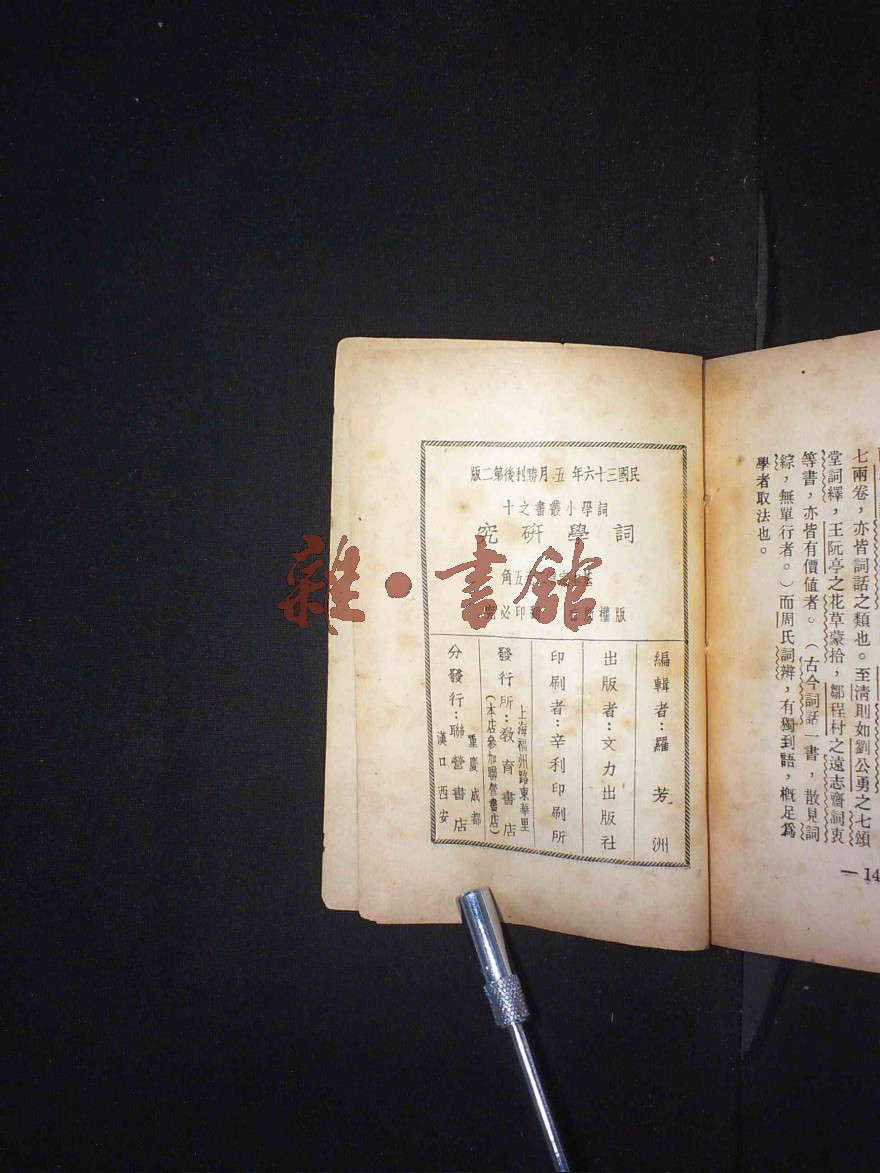 七兩卷，亦皆詞話之類也。至清則如劉公勇之七頌
堂詞繹，王阮亭之花草蒙拾，鄒程村之遠志齋詞衷
等書，亦皆有價值者。（古今詞話一書，散見詞
綜，無單行者。）而周氏詞辨，有獨到語，概足為
學者取法也。
— 14
民國三十六年五月勝利後第二版
詞學小叢書之十
詞學研究
五角
版權所有 翻印必究
編輯者：羅芳洲
出版者：文力出版社
印刷者：辛利印刷所
上海福州路東華里
發行所：教育書店
(本店參加聯營書店)
重慶成都
分發行：聯營書店
漢口西安
雜·書館